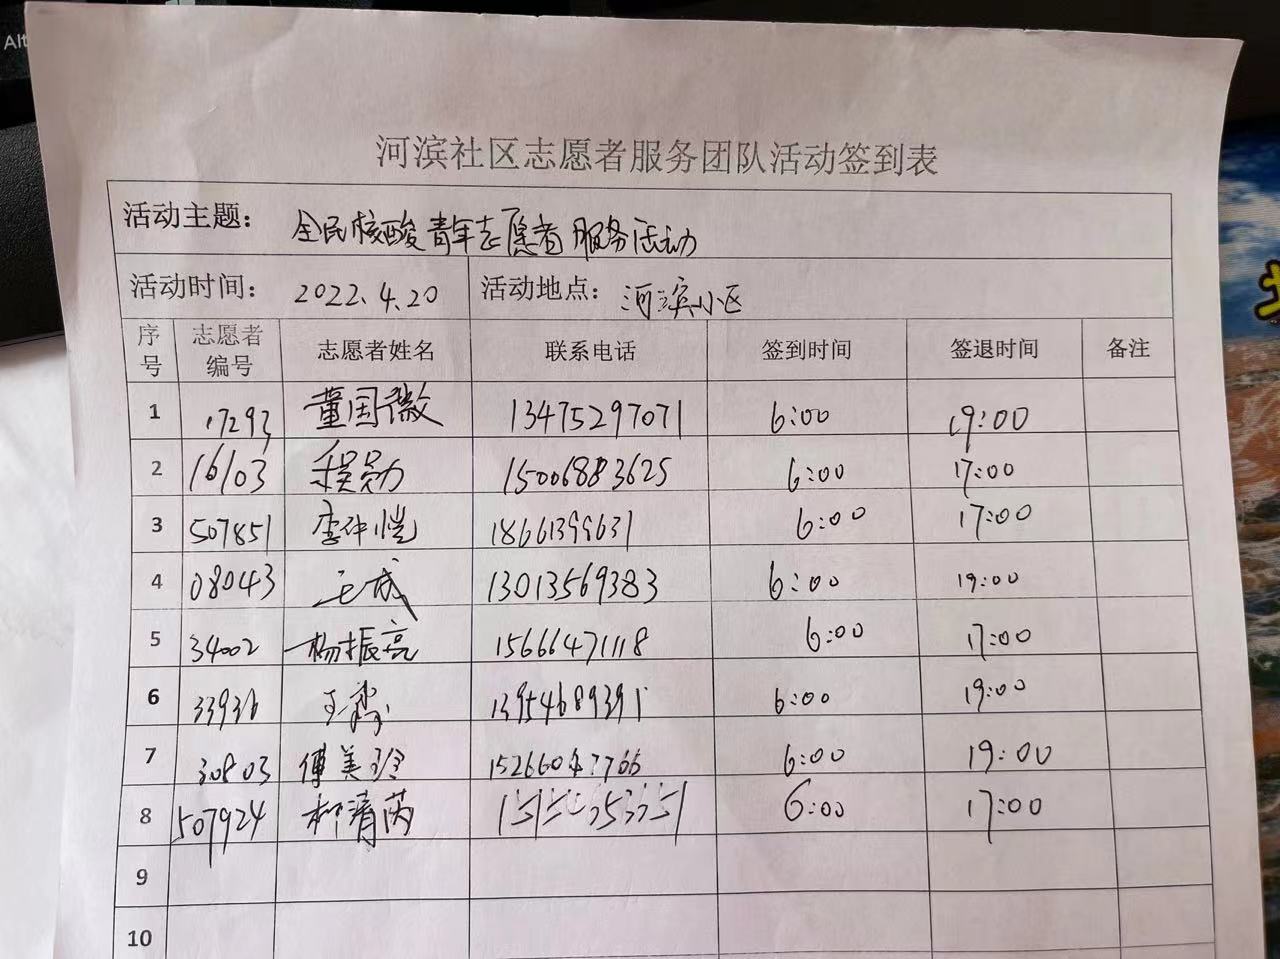 Alt
河滨社区志愿者服务团队活动签到表
活动主题： 全民核酸青年志愿者服务活动
活动时间： 2022.4.20 活动地点： 河滨小区
序号 志愿者编号 志愿者姓名 联系电话 签到时间 签退时间 备注
1 17293 董国徽 13475297071 6:00 19:00
2 16103 程勋 15006883625 6:00 17:00
3 507851 李仲恺 18661399631 6:00 17:00
4 08043 王成 13013569383 6:00 19:00
5 34002 杨振亮 15666471118 6:00 17:00
6 33936 王 13954689391 6:00 19:00
7 30803 傅美玲 6:00 19:00
8 507924 柳清芮 6:00 17:00
9
10